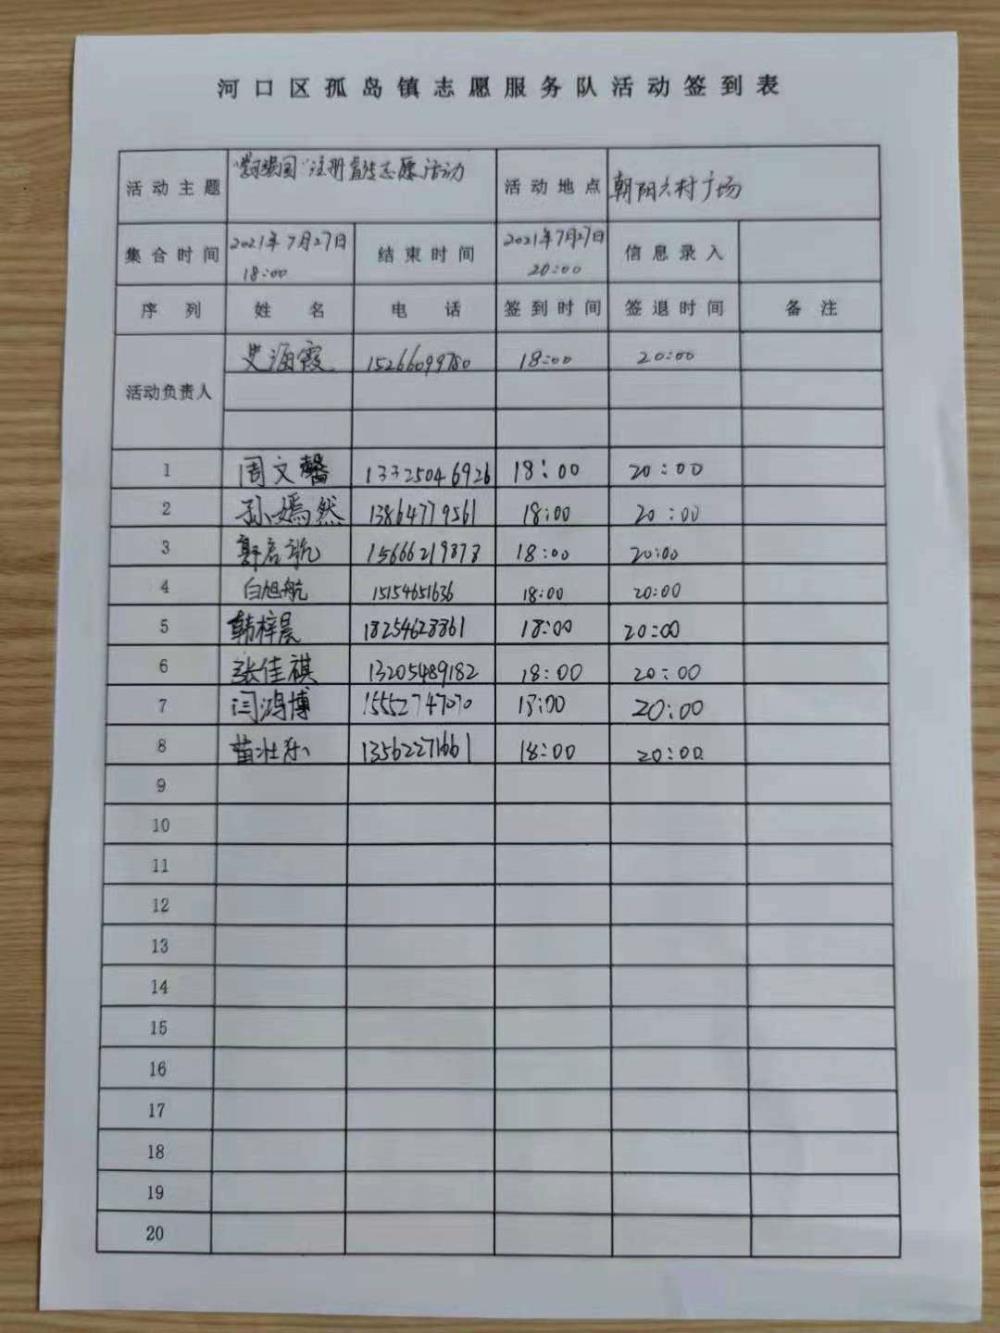 河口区孤岛镇志愿服务队活动签到表
活动主题 "学习强国"注册宣传志愿活动 活动地点 朝阳六村广场
集合时间 2021年7月27日 18:00 结束时间 2021年7月27日 20:00 信息录入
序列 姓名 电话 签到时间 签退时间 备注
活动负责人 史海霞 15266099780 18:00 20:00
1 周文馨 13325046926 18:00 20:00
2 孙嫣然 13864779561 18:00 20:00
3 郭启航 15666219878 18:00 20:00
4 白旭航 15154651636 18:00 20:00
5 韩梓晨 18254628861 18:00 20:00
6 张佳祺 13205489182 18:00 20:00
7 闫鸿博 15552747070 18:00 20:00
8 苗壮乐 13562271661 18:00 20:00
9
10
11
12
13
14
15
16
17
18
19
20